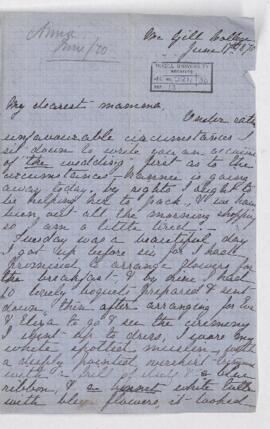 Anna
June/70
Mc Gill College
June 17th 1870
McGILL UNIVERSITY
ARCHIVES
ACC. NO.
REF.
My dearest mamma,
Under rather
unfavourable circumstances I
sit down to write you an account
of the wedding, first as to the
circumstances - is going
away today, by rights I ought to
be helping her to pack, & we have
been out all the morning shopping
so I am a little tired.
Tuesday was a beautiful day
I got up before six for I had
promised to arrange flowers for
the breakfast & by nine I had
lovely boquets prepared & sent
down, then after arranging for Eva
& Eliza to go & see the ceremony
I went up to dress, I wore my
white spotted muslin with
a deeply pointed overskirt
with a frill of & a blue
ribbon, & a white
with blue flowers, it looked